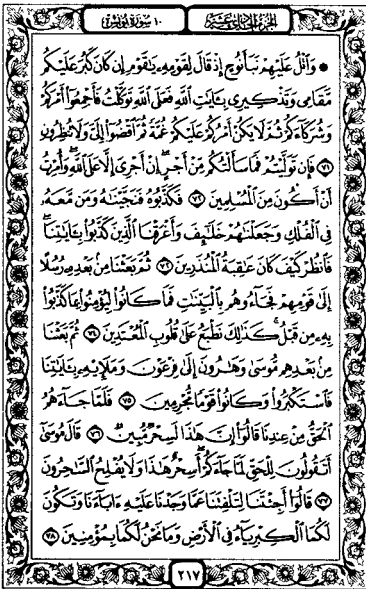 الجزء الحادي عشر
١٠ سورة يونس
۞ وَٱتْلُ عَلَيْهِمْ نَبَأَ نُوحٍ إِذْ قَالَ لِقَوْمِهِۦ يَٰقَوْمِ إِن كَانَ كَبُرَ عَلَيْكُم
مَّقَامِى وَتَذْكِيرِى بِـَٔايَٰتِ ٱللَّهِ فَعَلَى ٱللَّهِ تَوَكَّلْتُ فَأَجْمِعُوٓا۟ أَمْرَكُمْ
وَشُرَكَآءَكُمْ ثُمَّ لَا يَكُنْ أَمْرُكُمْ عَلَيْكُمْ غُمَّةً ثُمَّ ٱقْضُوٓا۟ إِلَىَّ وَلَا تُنظِرُونِ
٧١ فَإِن تَوَلَّيْتُمْ فَمَا سَأَلْتُكُم مِّنْ أَجْرٍ إِنْ أَجْرِىَ إِلَّا عَلَى ٱللَّهِ وَأُمِرْتُ
أَنْ أَكُونَ مِنَ ٱلْمُسْلِمِينَ ٧٢ فَكَذَّبُوهُ فَنَجَّيْنَٰهُ وَمَن مَّعَهُۥ
فِى ٱلْفُلْكِ وَجَعَلْنَٰهُمْ خَلَٰٓئِفَ وَأَغْرَقْنَا ٱلَّذِينَ كَذَّبُوا۟ بِـَٔايَٰتِنَا
فَٱنظُرْ كَيْفَ كَانَ عَٰقِبَةُ ٱلْمُنذَرِينَ ٧٣ ثُمَّ بَعَثْنَا مِنۢ بَعْدِهِۦ رُسُلًا
إِلَىٰ قَوْمِهِمْ فَجَآءُوهُم بِٱلْبَيِّنَٰتِ فَمَا كَانُوا۟ لِيُؤْمِنُوا۟ بِمَا كَذَّبُوا۟
بِهِۦ مِن قَبْلُ كَذَٰلِكَ نَطْبَعُ عَلَىٰ قُلُوبِ ٱلْمُعْتَدِينَ ٧٤ ثُمَّ بَعَثْنَا
مِنۢ بَعْدِهِم مُّوسَىٰ وَهَٰرُونَ إِلَىٰ فِرْعَوْنَ وَمَلَإِي۟هِۦ بِـَٔايَٰتِنَا
فَٱسْتَكْبَرُوا۟ وَكَانُوا۟ قَوْمًا مُّجْرِمِينَ ٧٥ فَلَمَّا جَآءَهُمُ
ٱلْحَقُّ مِنْ عِندِنَا قَالُوٓا۟ إِنَّ هَٰذَا لَسِحْرٌ مُّبِينٌ ٧٦ قَالَ مُوسَىٰٓ
أَتَقُولُونَ لِلْحَقِّ لَمَّا جَآءَكُمْ أَسِحْرٌ هَٰذَا وَلَا يُفْلِحُ ٱلسَّٰحِرُونَ
٧٧ قَالُوٓا۟ أَجِئْتَنَا لِتَلْفِتَنَا عَمَّا وَجَدْنَا عَلَيْهِ ءَابَآءَنَا وَتَكُونَ
لَكُمَا ٱلْكِبْرِيَآءُ فِى ٱلْأَرْضِ وَمَا نَحْنُ لَكُمَا بِمُؤْمِنِينَ ٧٨
٢١٧